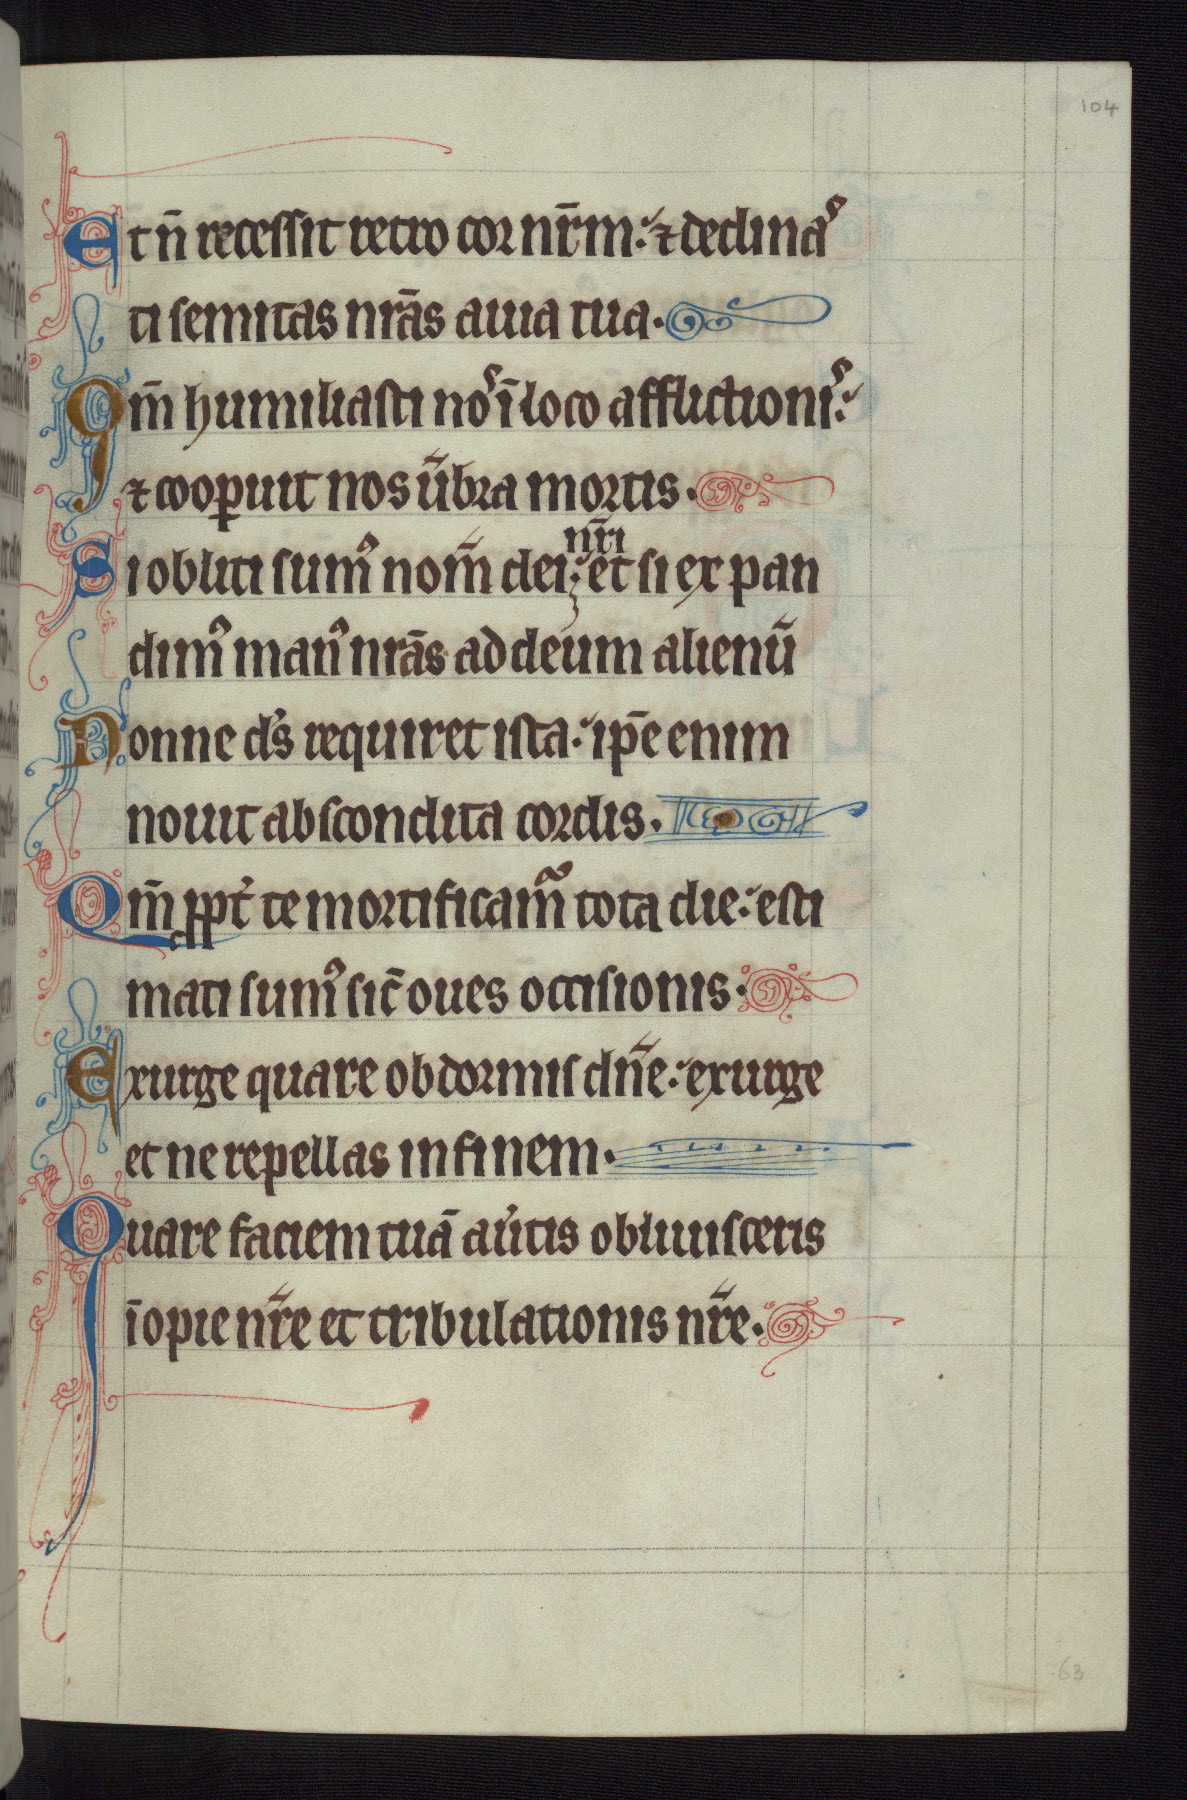 104
Et n̄ recessit retro cor nr̄m: ⁊ declinaˢ
ti semitas nr̄as a uia tua.
Qm̄ humiliasti noˢ ī loco afflictioniˢ:
⁊ cooꝑuit nos ūbra mortis.
nr̄i
Si obliti sumꝰ nom̄ dei: et si expan
dimꝰ manꝰ nr̄as ad deum alienū
Nonne ds̄ requiret ista: ip̄e enim
nouit abscondita cordis.
Qm̄ ꝓpt̾ te mortificamᷣ tota die: esti
mati sumꝰ sic̄ oues occisionis.
Exurge quare obdormis dn̄e: exurge
et ne repellas in finem.
Quare faciem tuā au̾tis obliuisceris
īopie nr̄e et tribulationis nr̄e.
63